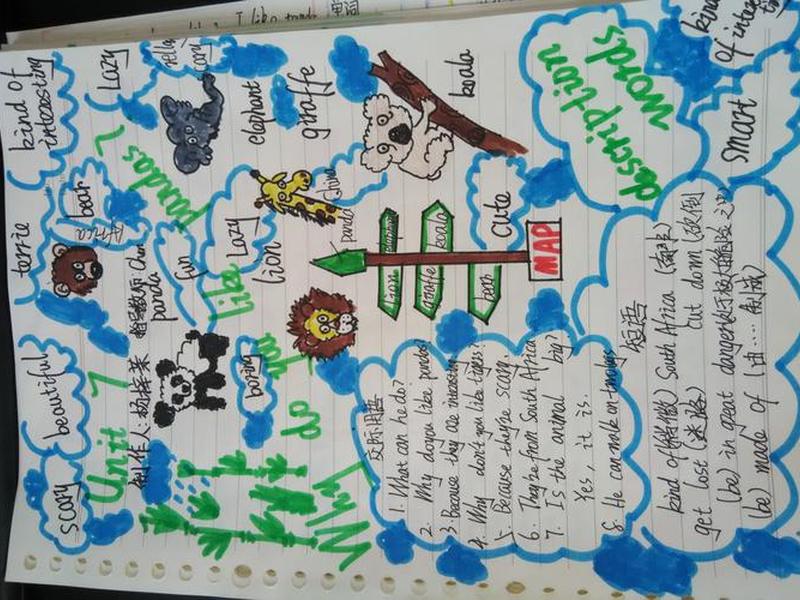 scary
beautiful
terrie
kind of
interesting
Lazy
Unit 7
制作人:
Why do you like pandas?
panda
fun
bear
Africa
elephant
boring
Lazy
lion
giraffe
China
koala
panda
lion
giraffe
koala
bear
MAP
cute
description
words
smart
kind
of interesting
交际用语
1. What can he do?
2. Why do you like pandas?
3. Because they are interesting
4. Why don't you like tigers?
5. Because they're scary.
6. They're from South Africa
7. Is the animal big?
Yes, it is.
8. He can walk on two legs
短语
kind of (稍微) South Africa (南非)
get lost (迷路) cut down (砍倒)
(be) in great danger(处于极大危险之中)
(be) made of (由……制成)